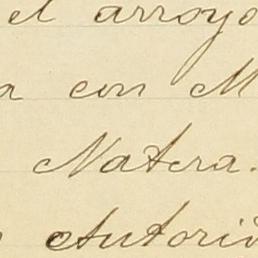 el arroyo
a con M
Natera.
Autori